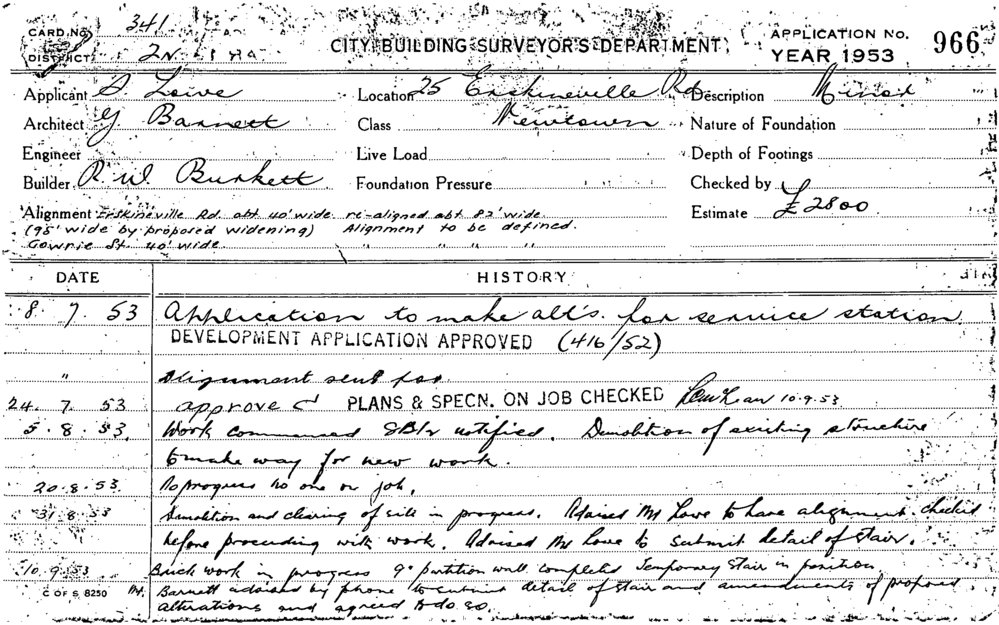 CARD NO. 341
CITY BUILDING SURVEYOR'S DEPARTMENT
APPLICATION No. 966
DISTRICT 2N
YEAR 1953
Applicant S. Lowe Location 25 Erskineville Rd Description Minor
Architect G Barnett Class Newtown Nature of Foundation
Engineer Live Load Depth of Footings
Builder R. W. Burkett Foundation Pressure Checked by
Estimate £2800
Alignment Erskineville Rd. abt 40' wide re-aligned abt 82' wide
(95' wide by proposed widening) Alignment to be defined.
Gowrie St. 40' wide " " "
DATE HISTORY
8. 7. 53 Application to make alt's. for service station.
DEVELOPMENT APPLICATION APPROVED (416/52)
" Alignment sent for
24. 7. 53 approved PLANS & SPECN. ON JOB CHECKED 10.9.53
5. 8. 53. Work commenced notified. Demolition of existing structure
to make way for new work.
20.8.53. No progress no one on job.
31.8.53 Demolition and clearing of site in progress. Advised Mr Lowe to have alignment checked
before proceeding with work. Advised Mr Lowe to submit detail of stair.
10.9.53 Brick work in progress 9" partition wall completed Temporary Stair in position.
C OF S 8250 Mr. Barnett advised by phone to submit detail of stair and amendments of proposed
alterations and agreed to do so.